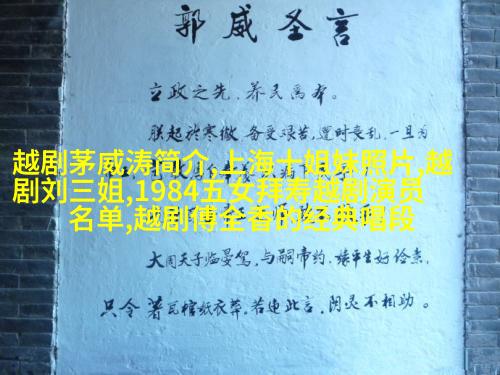 郭威圣言
立政之先，养民为本。
朕起于寒微，备受艰苦，遭时丧乱，一旦为
越剧茅威涛简介,上海十姐妹照片,越
剧刘三姐,1984五女拜寿越剧演员
名单,越剧傅全香的经典唱段
大周天子临晏驾，与嗣帝约，缘平生好俭素，
只令著瓦棺纸衣葬。若违此言，阴灵不相助。